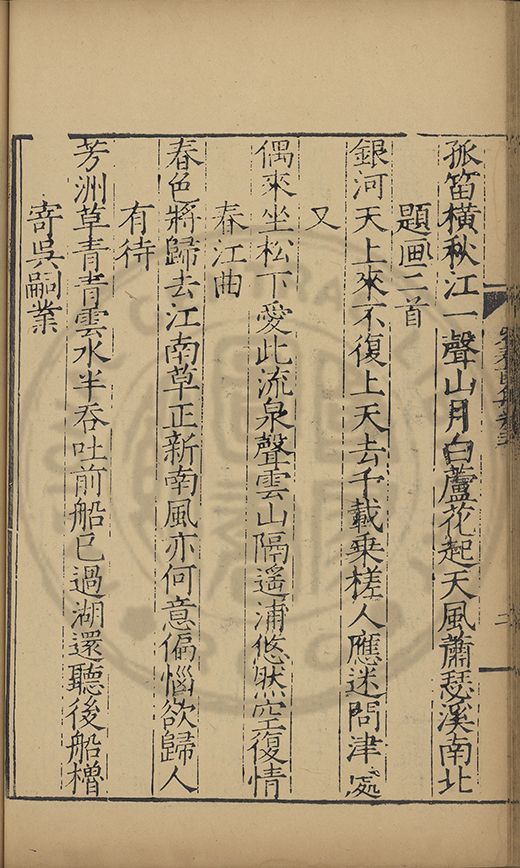 孤笛橫秋江一聲山月白蘆花起天風蕭瑟溪南北
題画二首
銀河天上來不復上天去千載乘槎人應迷問津處
又
偶來坐松下愛此流泉聲雲山隔遥浦悠然空復情
春江曲
春色將歸去江南草正新南風亦何意偏惱欲歸人
有待
芳洲草青青雲水半吞吐前船已過湖還聽後船櫓
寄吳嗣業
二